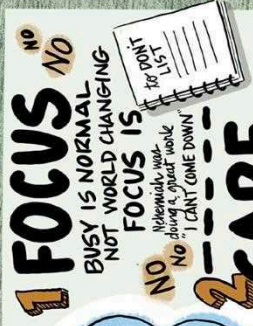 1 FOCUS
NO
NO
BUSY IS NORMAL
NOT WORLD CHANGING
FOCUS IS
to DON'T
LIST
NO
NO
Nehemiah was
doing a great work
"I CAN'T COME DOWN"
2